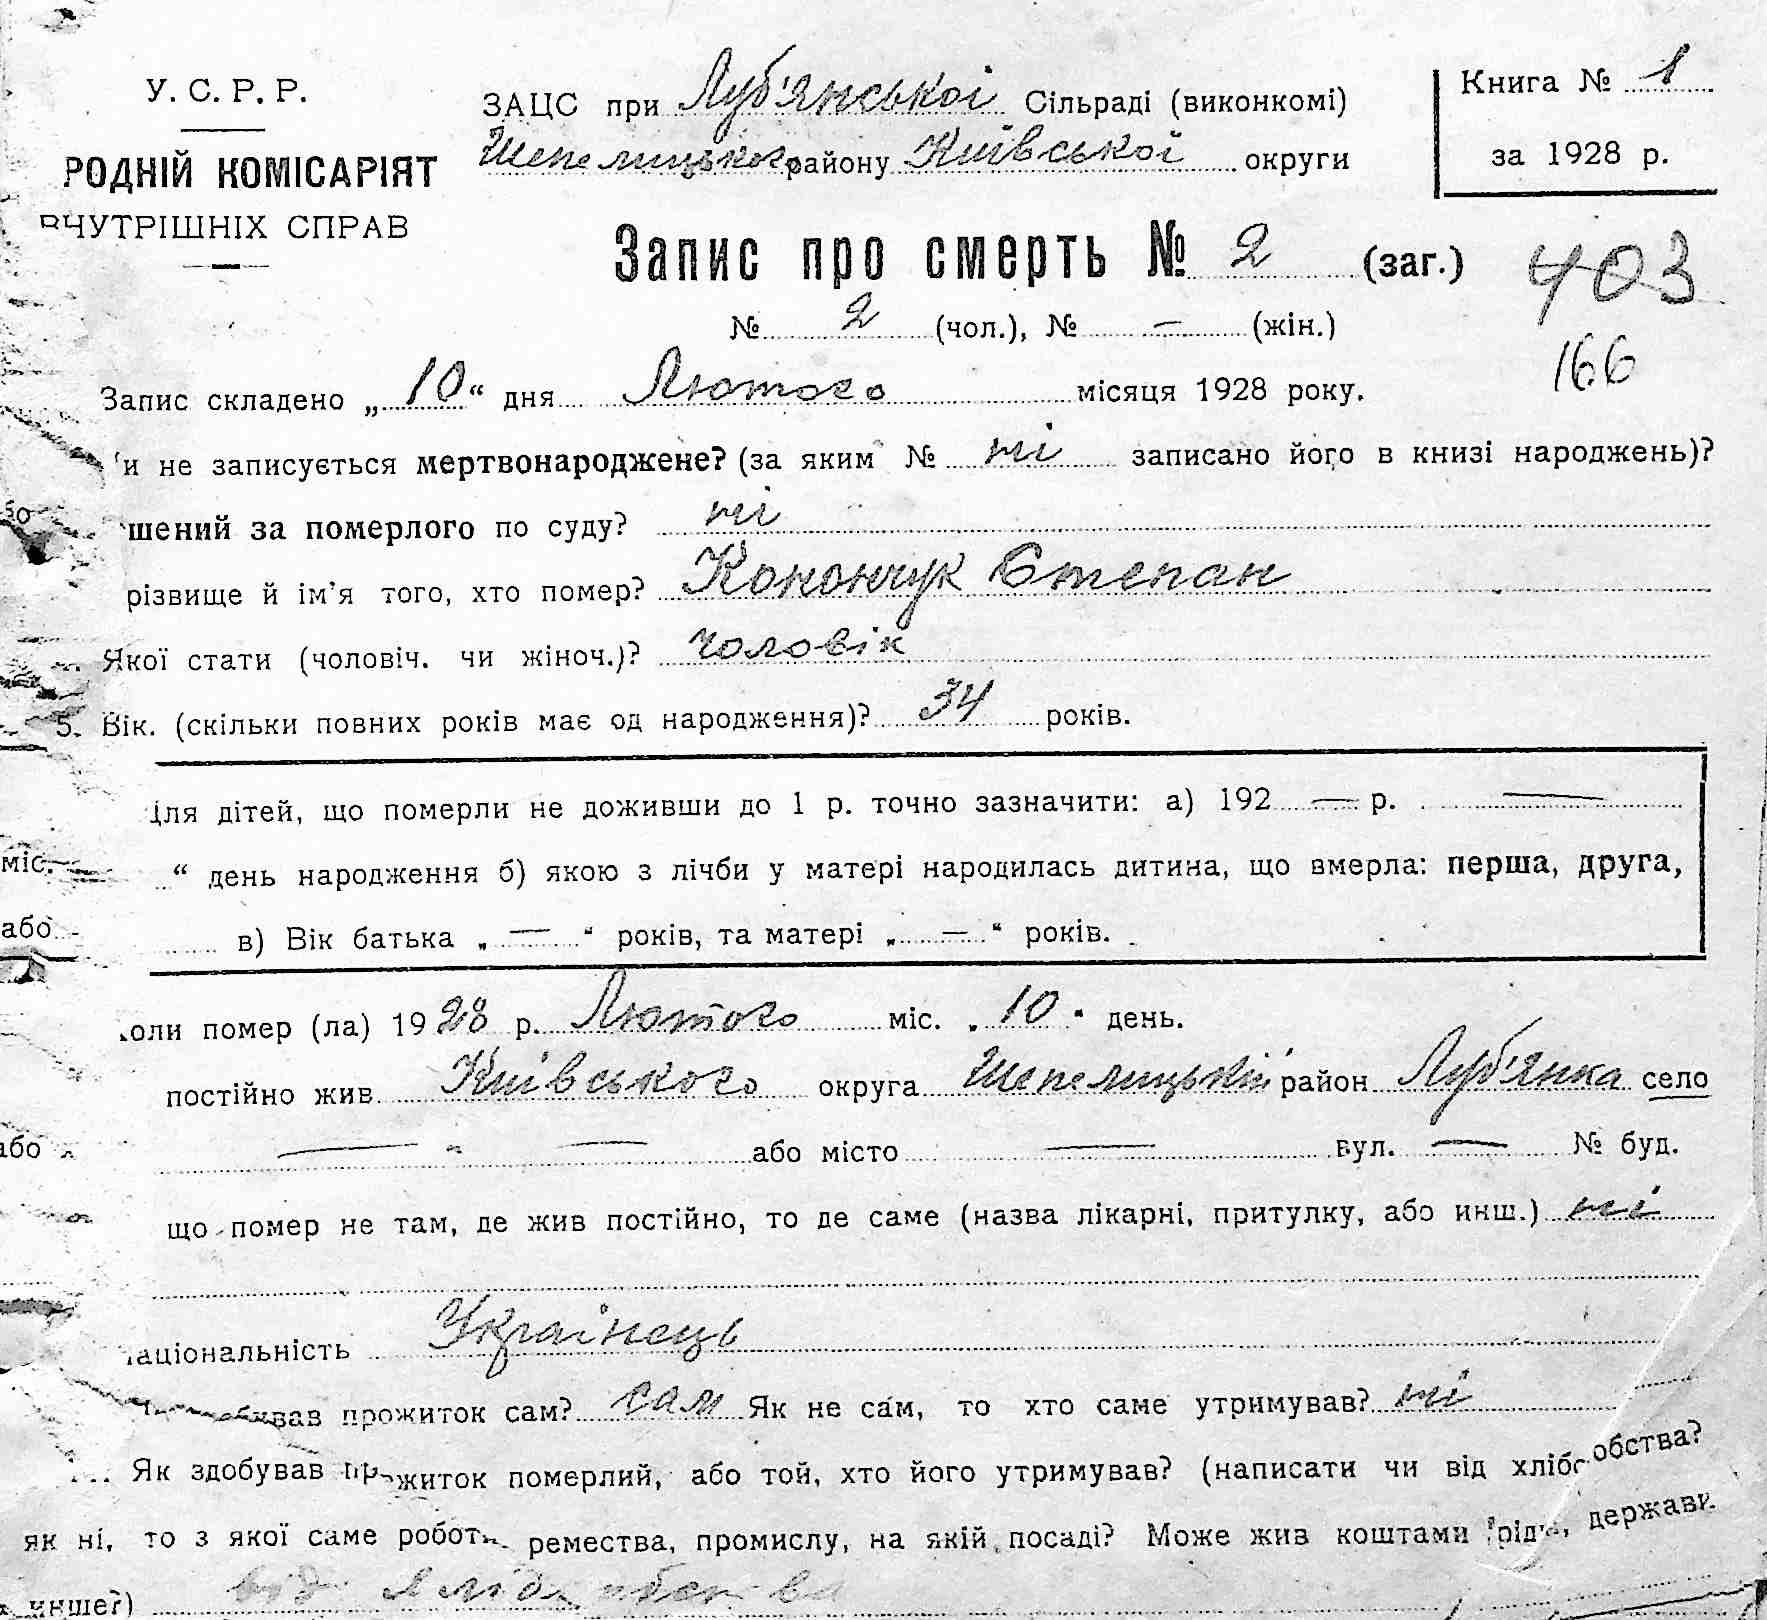 У. С. Р. Р.
РОДНІЙ КОМІСАРІЯТ
ВНУТРІШНІХ СПРАВ
ЗАЦС при Луб'янської Сільраді (виконкомі)
Шепелицького району Київської округи
Книга № 1
за 1928 р.
Запис про смерть № 2 (заг.)
403
№ 2 (чол.), № — (жін.)
166
Запис складено „10“ дня Лютого місяця 1928 року.
и не записується мертвонароджене? (за яким № ні записано його в книзі народжень)?
шений за померлого по суду? ні
різвище й ім'я того, хто помер? Конончук Степан
Якої стати (чоловіч. чи жіноч.)? чоловік
5. Вік. (скільки повних років має од народження)? 34 років.
ля дітей, що померли не доживши до 1 р. точно зазначити: а) 192 — р. —
міс.
“ день народження б) якою з лічби у матері народилась дитина, що вмерла: перша, друга,
або
в) Вік батька „ — “ років, та матері „ — “ років.
оли помер (ла) 1928 р. Лютого міс. „10“ день.
постійно жив Київського округа Шепелицький район Луб'янка село
або
— — або місто — вул. — № буд.
що помер не там, де жив постійно, то де саме (назва лікарні, притулку, або инш.) ні
аціональність Українець
бував прожиток сам? сам Як не сам, то хто саме утримував? ні
Як здобував прожиток померлий, або той, хто його утримував? (написати чи від хліборобства?
як ні, то з якої саме роботи ремества, промислу, на якій посаді? Може жив коштами рідні, держави
инше?) від